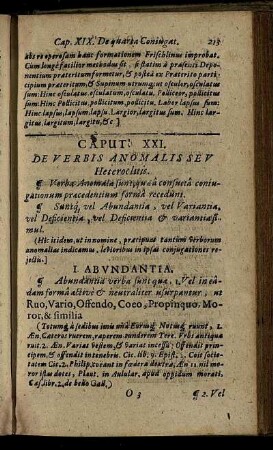 Cap. XIX. De quarta Coniugat. 213
ab re operosam hanc formationem Frischlinus improbat.
Cum longè facilior methodus sit, si statim à praesenti Depo-
nentium praeteritum formetur, & posteà ex Praterito parti-
cipium praeteritum, & Supinum utrumq; ut osculor, osculatus
sum: Hinc Osculatus, osculatum, osculatu. Polliceor, pollicitus
sum: Hinc Pollicitus, pollicitum, pollicitu. Labor lapsus sum:
Hinc: lapsus, lapsum, lapsu. Largior, largitus sum. Hinc lar-
gitus, largitum, largitu, &c.]
CAPUT. XXI.
DE VERBIS ANOMALIS SEV
Heteroclitis.
¶ Verba Anomala sunt, quae à consueta coniu-
gationum praecedentium forma recedunt.
¶ Suntq; vel Abundantia, vel Variantia,
vel Deficientia, vel Deficientia & variantia si-
mul.
(Hîc itidem, ut in nomine, praecipuas tantùm verborum
anomalias indicamus, levioribus in ipsas conjugationes re-
jectis.)
I. ABVNDANTIA.
¶ Abundantia verba sunt quae, 1. Vel in ea-
dem formâ activè & neutraliter usurpantur, ut
Ruo, Vario, Offendo, Coeo, Propinquo. Mo-
ror, & similia
(Totumq; à sedibus imis unà Eurusq; Notusq; ruunt, 1.
Æn. Caeteros ruerem, raperem, runderem Tere. Urbs antiqua
ruit. 2. Æn. Variat vestem, & variat intersu: Offendit prin-
cipem, & offendit in tenebris. Cic. lib. 9. Epist. 2. Coit socie-
tatem Cic. 2. Philip. coëant in foedera dextra, Æn. 11. nil mo-
ror istius dotes, Plaut. in Aulular, apud oppidum morati.
Caes. lib. 2. de bello Gall.)
O 3 ¶ 2. Vel